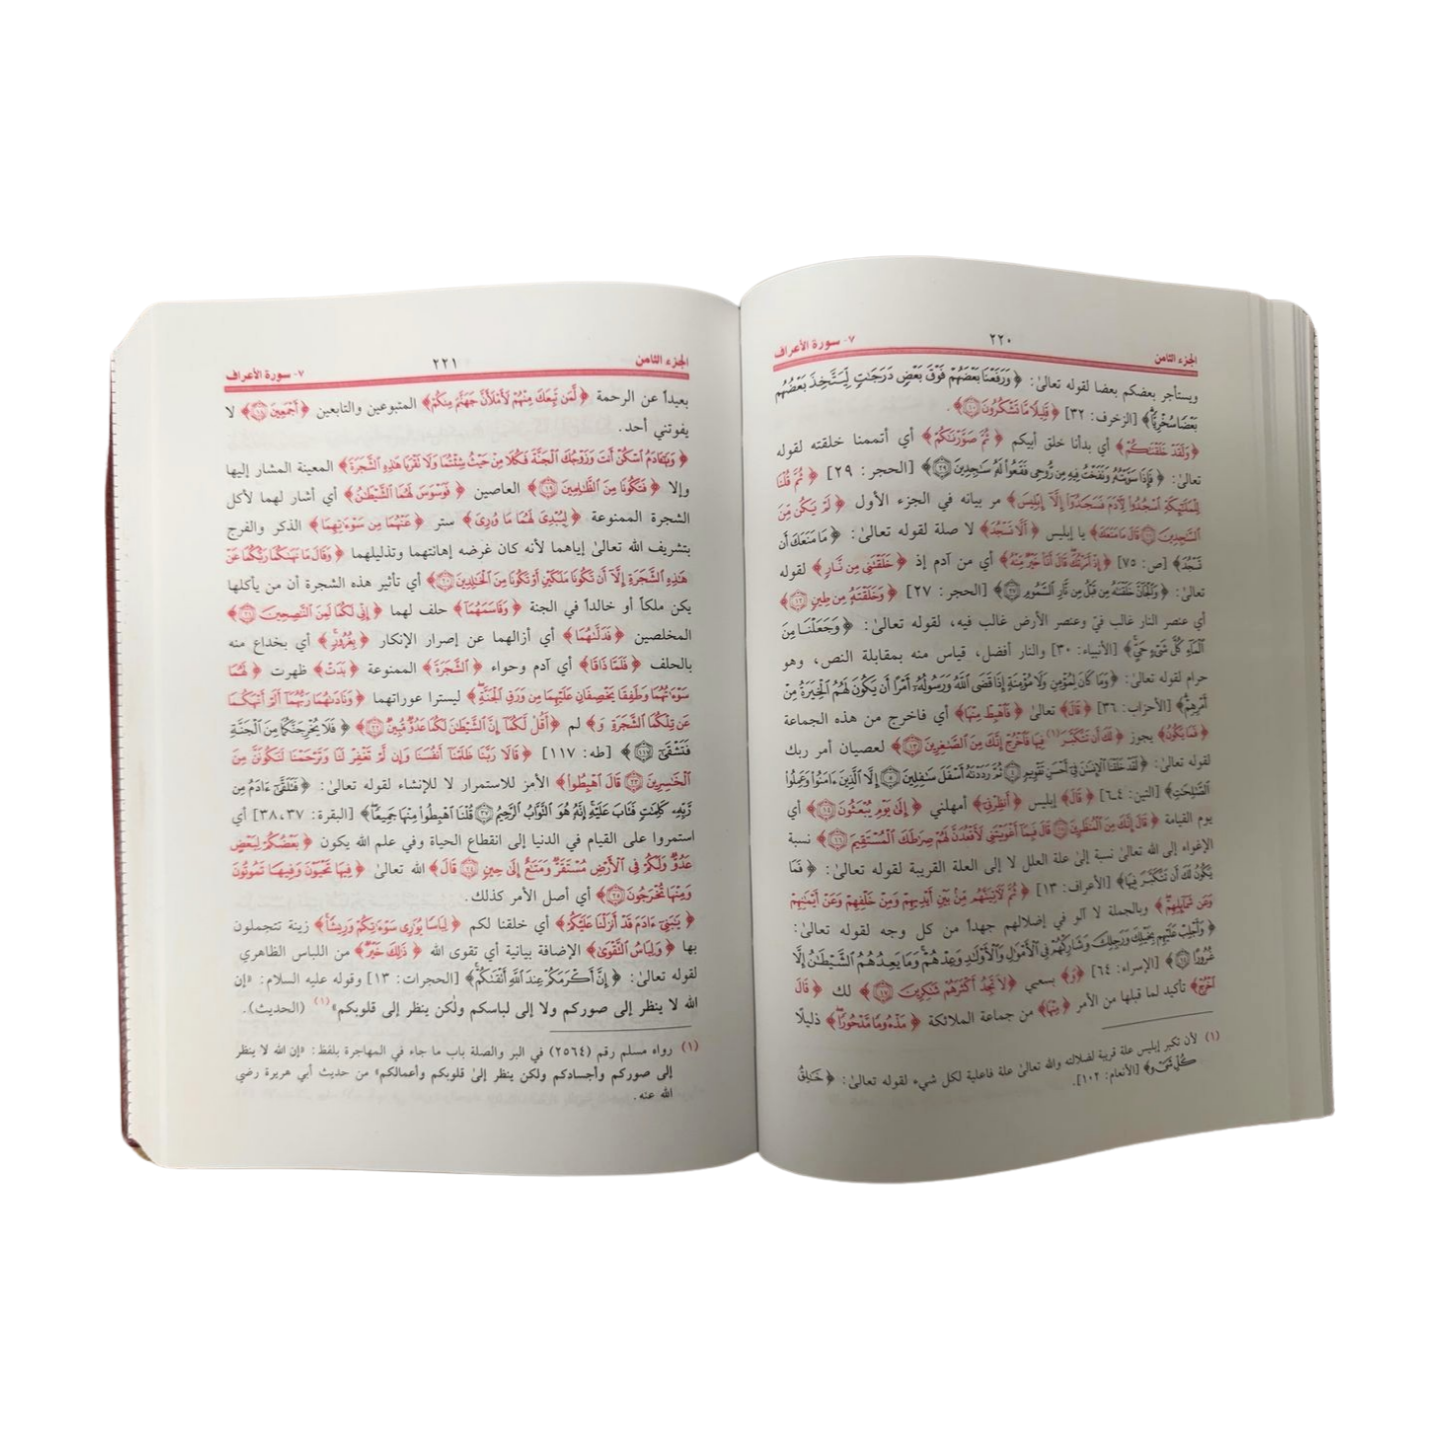 الجزء الثامن ٢٢٠ ٧- سورة الأعراف
ويستأجر بعضكم بعضا لقوله تعالىٰ: ﴿وَرَفَعْنَا بَعْضَهُمْ فَوْقَ بَعْضٍ دَرَجَٰتٍ لِّيَتَّخِذَ بَعْضُهُم
بَعْضًا سُخْرِيًّا﴾ [الزخرف: ٣٢] ﴿قَلِيلًا مَّا تَشْكُرُونَ ۝١٠﴾.
﴿وَلَقَدْ خَلَقْنَٰكُمْ﴾ أي بدأنا خلق أبيكم ﴿ثُمَّ صَوَّرْنَٰكُمْ﴾ أي أتممنا خلقته لقوله
تعالىٰ: ﴿فَإِذَا سَوَّيْتُهُۥ وَنَفَخْتُ فِيهِ مِن رُّوحِى فَقَعُوا۟ لَهُۥ سَٰجِدِينَ ۝٢٩﴾ [الحجر: ٢٩] ﴿ثُمَّ قُلْنَا
لِلْمَلَٰٓئِكَةِ ٱسْجُدُوا۟ لِءَادَمَ فَسَجَدُوٓا۟ إِلَّآ إِبْلِيسَ﴾ مر بيانه في الجزء الأول ﴿لَمْ يَكُن مِّنَ
ٱلسَّٰجِدِينَ ۝١١ قَالَ مَا مَنَعَكَ﴾ يا إبليس ﴿أَلَّا تَسْجُدَ﴾ لا صلة لقوله تعالىٰ: ﴿مَا مَنَعَكَ أَن
تَسْجُدَ﴾ [ص: ٧٥] ﴿إِذْ أَمَرْتُكَ قَالَ أَنَا۠ خَيْرٌ مِّنْهُ﴾ أي من آدم إذ ﴿خَلَقْتَنِى مِن نَّارٍ﴾ لقوله
تعالىٰ: ﴿وَٱلْجَآنَّ خَلَقْنَٰهُ مِن قَبْلُ مِن نَّارِ ٱلسَّمُومِ ۝٢٧﴾ [الحجر: ٢٧] ﴿وَخَلَقْتَهُۥ مِن طِينٍ ۝١٢﴾
أي عنصر النار غالب فيّ وعنصر الأرض غالب فيه، لقوله تعالىٰ: ﴿وَجَعَلْنَا مِنَ
ٱلْمَآءِ كُلَّ شَىْءٍ حَىٍّ﴾ [الأنبياء: ٣٠] والنار أفضل، قياس منه بمقابلة النص، وهو
حرام لقوله تعالىٰ: ﴿وَمَا كَانَ لِمُؤْمِنٍ وَلَا مُؤْمِنَةٍ إِذَا قَضَى ٱللَّهُ وَرَسُولُهُۥٓ أَمْرًا أَن يَكُونَ لَهُمُ ٱلْخِيَرَةُ مِنْ
أَمْرِهِمْ﴾ [الأحزاب: ٣٦] ﴿قَالَ﴾ تعالىٰ ﴿فَٱهْبِطْ مِنْهَا﴾ أي فاخرج من هذه الجماعة
﴿فَمَا يَكُونُ﴾ يجوز ﴿لَكَ أَن تَتَكَبَّرَ (١) فِيهَا فَٱخْرُجْ إِنَّكَ مِنَ ٱلصَّٰغِرِينَ ۝١٣﴾ لعصيان أمر ربك
لقوله تعالىٰ: ﴿لَقَدْ خَلَقْنَا ٱلْإِنسَٰنَ فِىٓ أَحْسَنِ تَقْوِيمٍ ۝٤ ثُمَّ رَدَدْنَٰهُ أَسْفَلَ سَٰفِلِينَ ۝٥ إِلَّا ٱلَّذِينَ ءَامَنُوا۟ وَعَمِلُوا۟
ٱلصَّٰلِحَٰتِ﴾ [التين: ٤-٦] ﴿قَالَ﴾ إبليس ﴿أَنظِرْنِىٓ﴾ أمهلني ﴿إِلَىٰ يَوْمِ يُبْعَثُونَ ۝١٤﴾ أي
يوم القيامة ﴿قَالَ إِنَّكَ مِنَ ٱلْمُنظَرِينَ ۝١٥ قَالَ فَبِمَآ أَغْوَيْتَنِى لَأَقْعُدَنَّ لَهُمْ صِرَٰطَكَ ٱلْمُسْتَقِيمَ ۝١٦﴾ نسبة
الإغواء إلى الله تعالىٰ نسبة إلىٰ علة العلل لا إلى العلة القريبة لقوله تعالىٰ: ﴿فَمَا
يَكُونُ لَكَ أَن تَتَكَبَّرَ فِيهَا﴾ [الأعراف: ١٣] ﴿ثُمَّ لَءَاتِيَنَّهُم مِّنۢ بَيْنِ أَيْدِيهِمْ وَمِنْ خَلْفِهِمْ وَعَنْ أَيْمَٰنِهِمْ
وَعَن شَمَآئِلِهِمْ﴾ وبالجملة لا آلو في إضلالهم جهداً من كل وجه لقوله تعالىٰ:
﴿وَأَجْلِبْ عَلَيْهِم بِخَيْلِكَ وَرَجِلِكَ وَشَارِكْهُمْ فِى ٱلْأَمْوَٰلِ وَٱلْأَوْلَٰدِ وَعِدْهُمْ وَمَا يَعِدُهُمُ ٱلشَّيْطَٰنُ إِلَّا
غُرُورًا ۝٦٤﴾ [الإسراء: ٦٤] ﴿وَ﴾ بسعيي ﴿لَا تَجِدُ أَكْثَرَهُمْ شَٰكِرِينَ ۝١٧﴾ لك ﴿قَالَ
ٱخْرُجْ﴾ تأكيد لما قبلها من الأمر ﴿مِنْهَا﴾ من جماعة الملائكة ﴿مَذْءُومًا مَّدْحُورًا﴾ ذليلًا
(١) لأن تكبر إبليس علة قريبة لضلالته والله تعالىٰ علة فاعلية لكل شيء لقوله تعالىٰ: ﴿خَٰلِقُ
كُلِّ شَىْءٍ﴾ [الأنعام: ١٠٢].
الجزء الثامن ٢٢١ ٧- سورة الأعراف
بعيداً عن الرحمة ﴿لَّمَن تَبِعَكَ مِنْهُمْ لَأَمْلَأَنَّ جَهَنَّمَ مِنكُمْ﴾ المتبوعين والتابعين ﴿أَجْمَعِينَ ۝١٨﴾ لا
يفوتني أحد.
﴿وَيَٰٓـَٔادَمُ ٱسْكُنْ أَنتَ وَزَوْجُكَ ٱلْجَنَّةَ فَكُلَا مِنْ حَيْثُ شِئْتُمَا وَلَا تَقْرَبَا هَٰذِهِ ٱلشَّجَرَةَ﴾ المعينة المشار إليها
وإلا ﴿فَتَكُونَا مِنَ ٱلظَّٰلِمِينَ ۝١٩﴾ العاصين ﴿فَوَسْوَسَ لَهُمَا ٱلشَّيْطَٰنُ﴾ أي أشار لهما لأكل
الشجرة الممنوعة ﴿لِيُبْدِىَ لَهُمَا مَا وُۥرِىَ﴾ ستر ﴿عَنْهُمَا مِن سَوْءَٰتِهِمَا﴾ الذكر والفرج
بتشريف الله تعالىٰ إياهما لأنه كان غرضه إهانتهما وتذليلهما ﴿وَقَالَ مَا نَهَىٰكُمَا رَبُّكُمَا عَنْ
هَٰذِهِ ٱلشَّجَرَةِ إِلَّآ أَن تَكُونَا مَلَكَيْنِ أَوْ تَكُونَا مِنَ ٱلْخَٰلِدِينَ ۝٢٠﴾ أي تأثير هذه الشجرة أن من يأكلها
يكن ملكاً أو خالداً في الجنة ﴿وَقَاسَمَهُمَآ﴾ حلف لهما ﴿إِنِّى لَكُمَا لَمِنَ ٱلنَّٰصِحِينَ ۝٢١﴾
المخلصين ﴿فَدَلَّىٰهُمَا﴾ أي أزالهما عن إصرار الإنكار ﴿بِغُرُورٍ﴾ أي بخداع منه
بالحلف ﴿فَلَمَّا ذَاقَا﴾ أي آدم وحواء ﴿ٱلشَّجَرَةَ﴾ الممنوعة ﴿بَدَتْ﴾ ظهرت ﴿لَهُمَا
سَوْءَٰتُهُمَا وَطَفِقَا يَخْصِفَانِ عَلَيْهِمَا مِن وَرَقِ ٱلْجَنَّةِ﴾ ليسترا عوراتهما ﴿وَنَادَىٰهُمَا رَبُّهُمَآ أَلَمْ أَنْهَكُمَا
عَن تِلْكُمَا ٱلشَّجَرَةِ وَ﴾ لم ﴿أَقُل لَّكُمَآ إِنَّ ٱلشَّيْطَٰنَ لَكُمَا عَدُوٌّ مُّبِينٌ ۝٢٢﴾ ﴿فَلَا يُخْرِجَنَّكُمَا مِنَ ٱلْجَنَّةِ
فَتَشْقَىٰٓ ۝١١٧﴾ [طه: ١١٧] ﴿قَالَا رَبَّنَا ظَلَمْنَآ أَنفُسَنَا وَإِن لَّمْ تَغْفِرْ لَنَا وَتَرْحَمْنَا لَنَكُونَنَّ مِنَ
ٱلْخَٰسِرِينَ ۝٢٣ قَالَ ٱهْبِطُوا۟﴾ الأمر للاستمرار لا للإنشاء لقوله تعالىٰ: ﴿فَتَلَقَّىٰٓ ءَادَمُ مِن
رَّبِّهِۦ كَلِمَٰتٍ فَتَابَ عَلَيْهِ إِنَّهُۥ هُوَ ٱلتَّوَّابُ ٱلرَّحِيمُ ۝٣٧ قُلْنَا ٱهْبِطُوا۟ مِنْهَا جَمِيعًا﴾ [البقرة: ٣٧، ٣٨] أي
استمروا على القيام في الدنيا إلى انقطاع الحياة وفي علم الله يكون ﴿بَعْضُكُمْ لِبَعْضٍ
عَدُوٌّ وَلَكُمْ فِى ٱلْأَرْضِ مُسْتَقَرٌّ وَمَتَٰعٌ إِلَىٰ حِينٍ ۝٢٤ قَالَ﴾ الله تعالىٰ ﴿فِيهَا تَحْيَوْنَ وَفِيهَا تَمُوتُونَ
وَمِنْهَا تُخْرَجُونَ ۝٢٥﴾ أي أصل الأمر كذلك.
﴿يَٰبَنِىٓ ءَادَمَ قَدْ أَنزَلْنَا عَلَيْكُمْ﴾ أي خلقنا لكم ﴿لِبَاسًا يُوَٰرِى سَوْءَٰتِكُمْ وَرِيشًا﴾ زينة تتجملون
بها ﴿وَلِبَاسُ ٱلتَّقْوَىٰ﴾ الإضافة بيانية أي تقوى الله ﴿ذَٰلِكَ خَيْرٌ﴾ من اللباس الظاهري
لقوله تعالىٰ: ﴿إِنَّ أَكْرَمَكُمْ عِندَ ٱللَّهِ أَتْقَىٰكُمْ﴾ [الحجرات: ١٣] وقوله عليه السلام: «إن
الله لا ينظر إلى صوركم ولا إلى لباسكم ولٰكن ينظر إلى قلوبكم» (١) (الحديث).
(١) رواه مسلم رقم (٢٥٦٤) في البر والصلة باب ما جاء في المهاجرة بلفظ: «إن الله لا ينظر
إلى صوركم وأجسادكم ولكن ينظر إلىٰ قلوبكم وأعمالكم» من حديث أبي هريرة رضي
الله عنه.